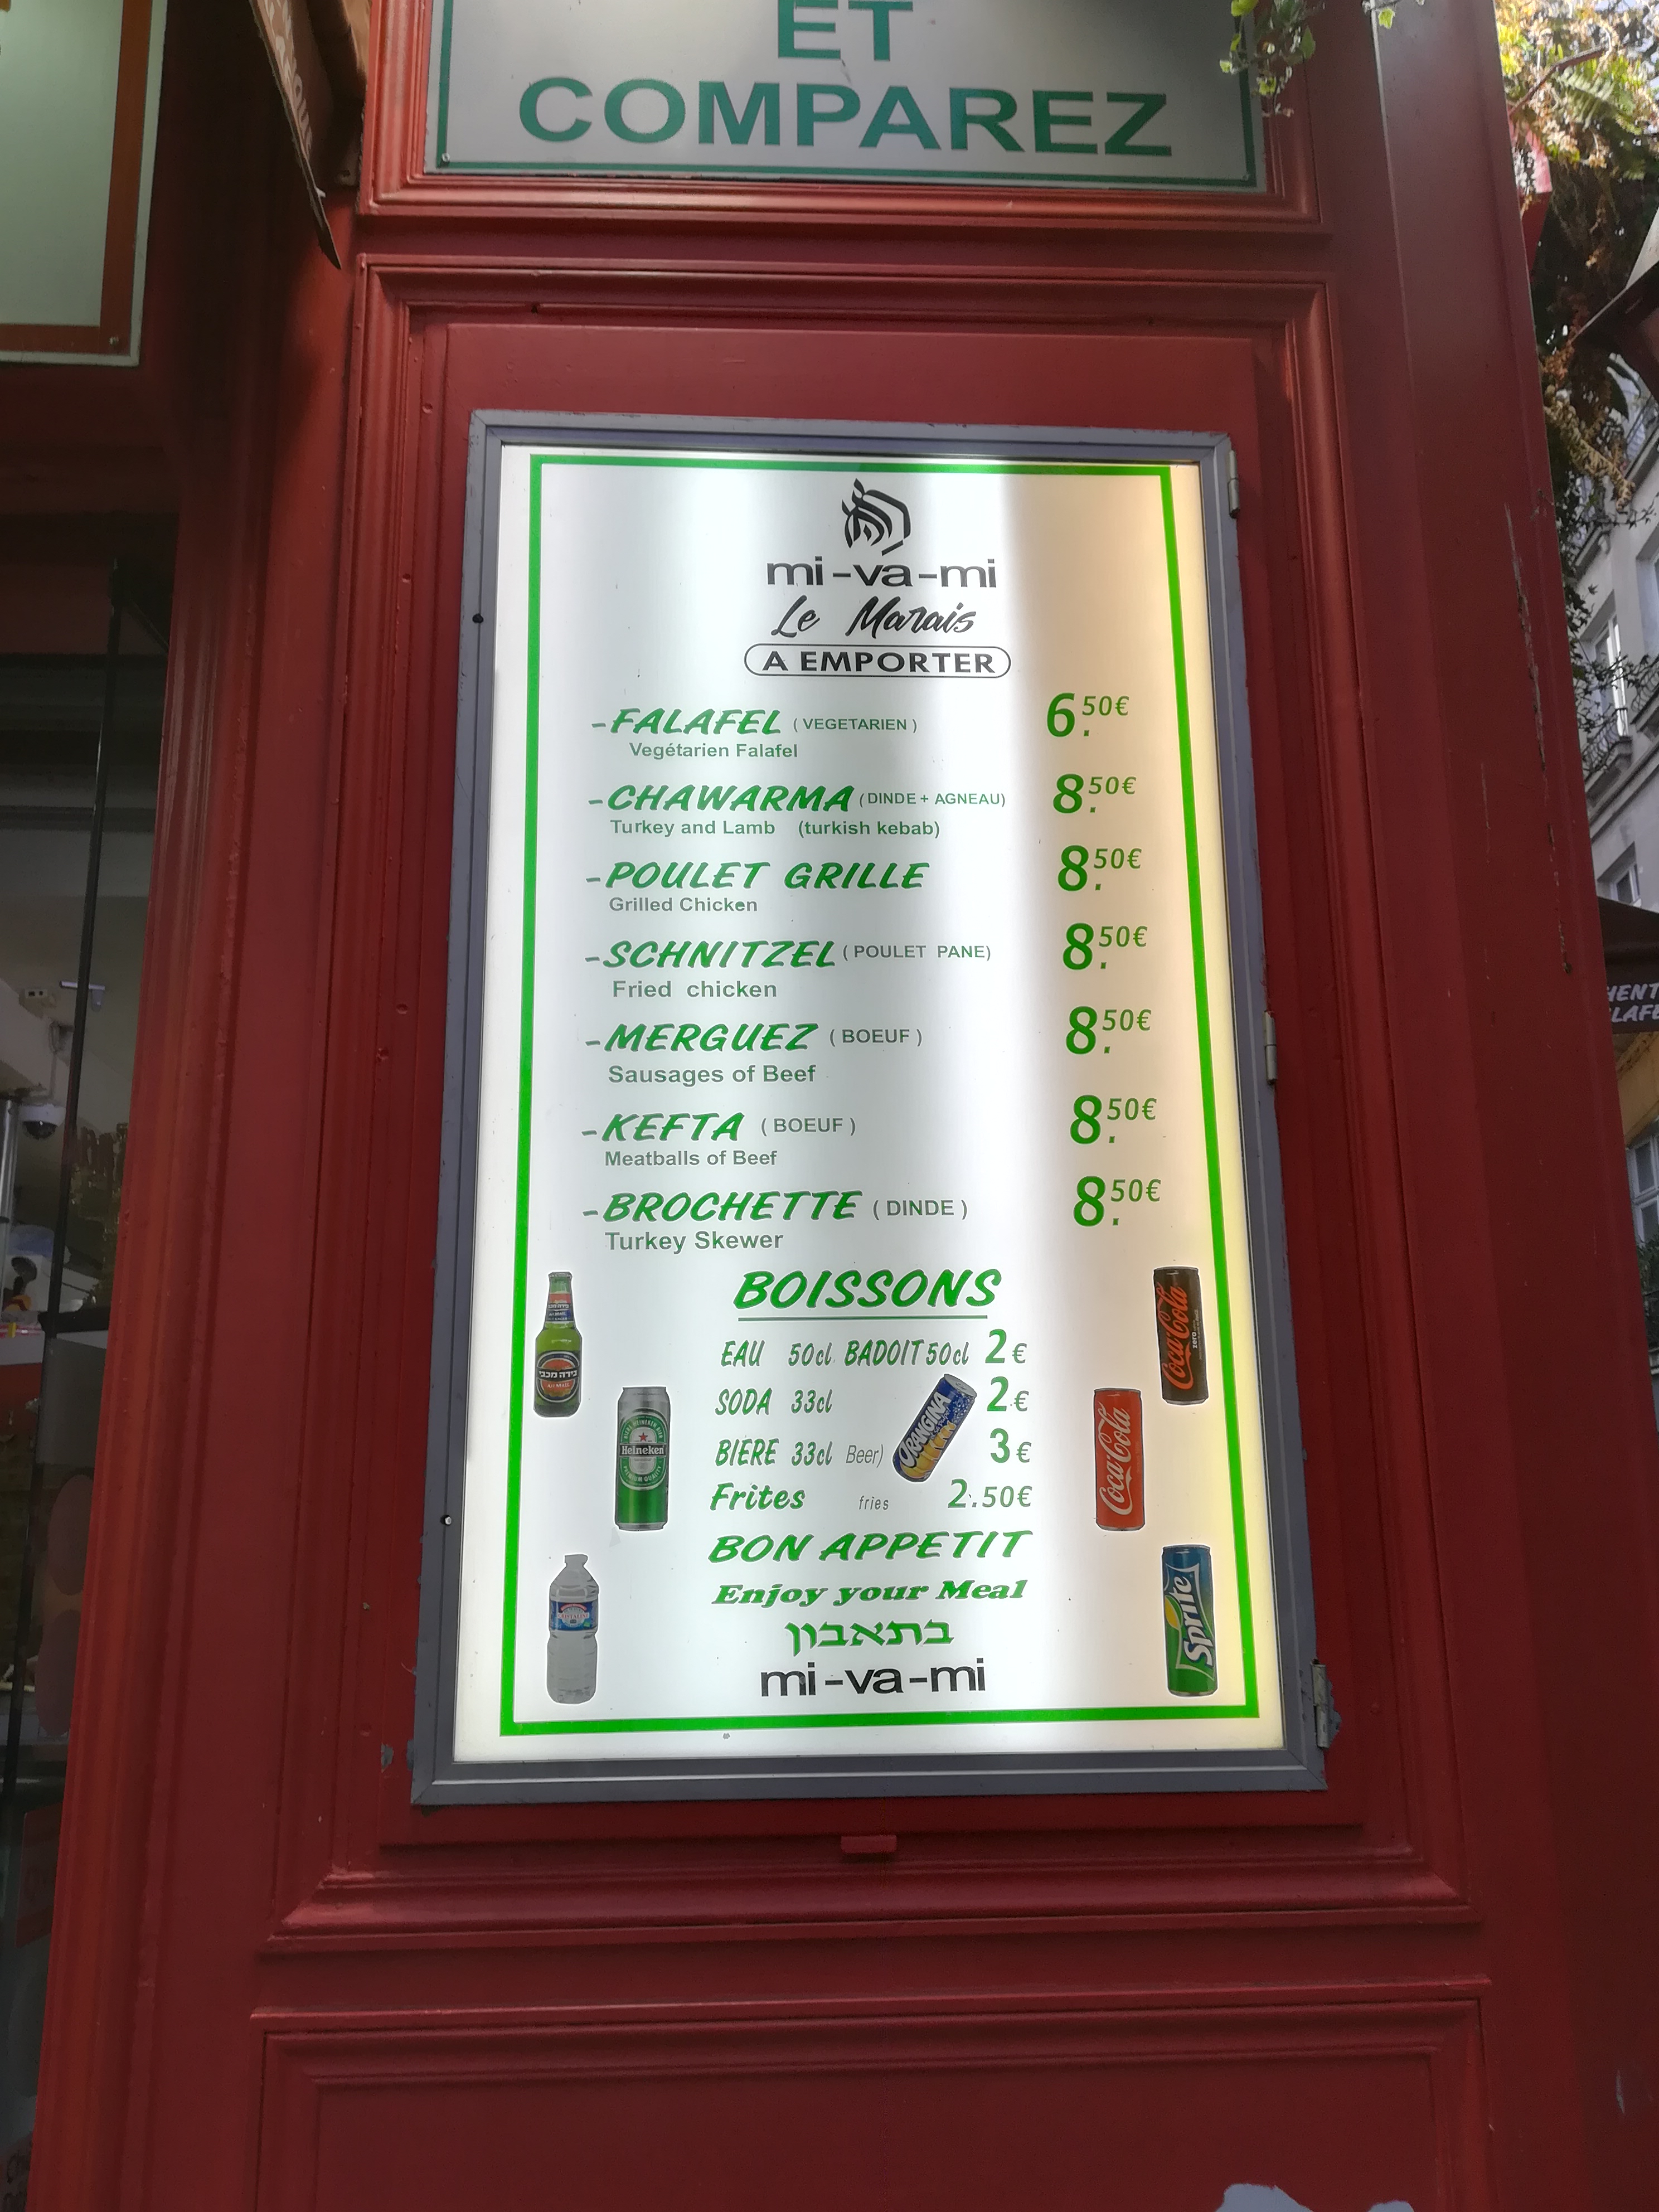 ET
COMPAREZ
mi-va-mi
Le Marais
A EMPORTER
-FALAFEL (VEGETARIEN) 6.50€
Vegétarien Falafel
-CHAWARMA (DINDE + AGNEAU) 8.50€
Turkey and Lamb (turkish kebab)
-POULET GRILLE 8.50€
Grilled Chicken
-SCHNITZEL (POULET PANE) 8.50€
Fried chicken
-MERGUEZ (BOEUF) 8.50€
Sausages of Beef
-KEFTA (BOEUF) 8.50€
Meatballs of Beef
-BROCHETTE (DINDE) 8.50€
Turkey Skewer
BOISSONS
EAU 50cl BADOIT 50cl 2€
SODA 33cl 2€
BIERE 33cl Beer) 3€
Frites fries 2.50€
BON APPETIT
Enjoy your Meal
בתאבון
mi-va-mi
בירה מכבי
Heineken
ORANGINA
Coca-Cola
zero
Coca-Cola
Sprite